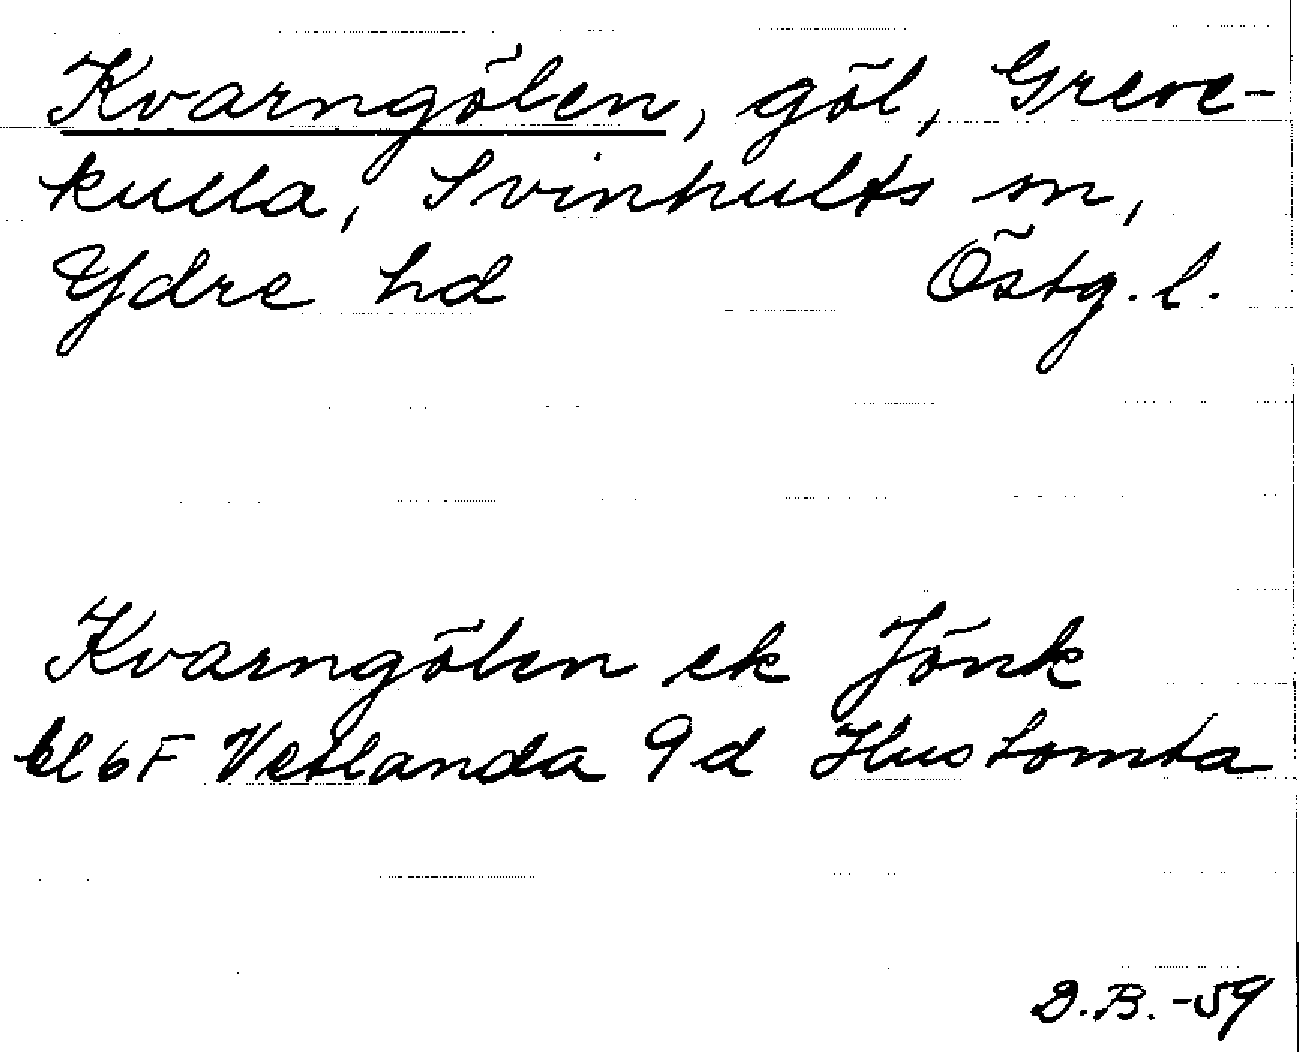 Kvarngölen, göl, Greve-
kulla, Svinhults sn,
Ydre hd Östg. l.
Kvarngölen ek Jönk
bl 6F Vetlanda 9d Hustomta
D.B. -59